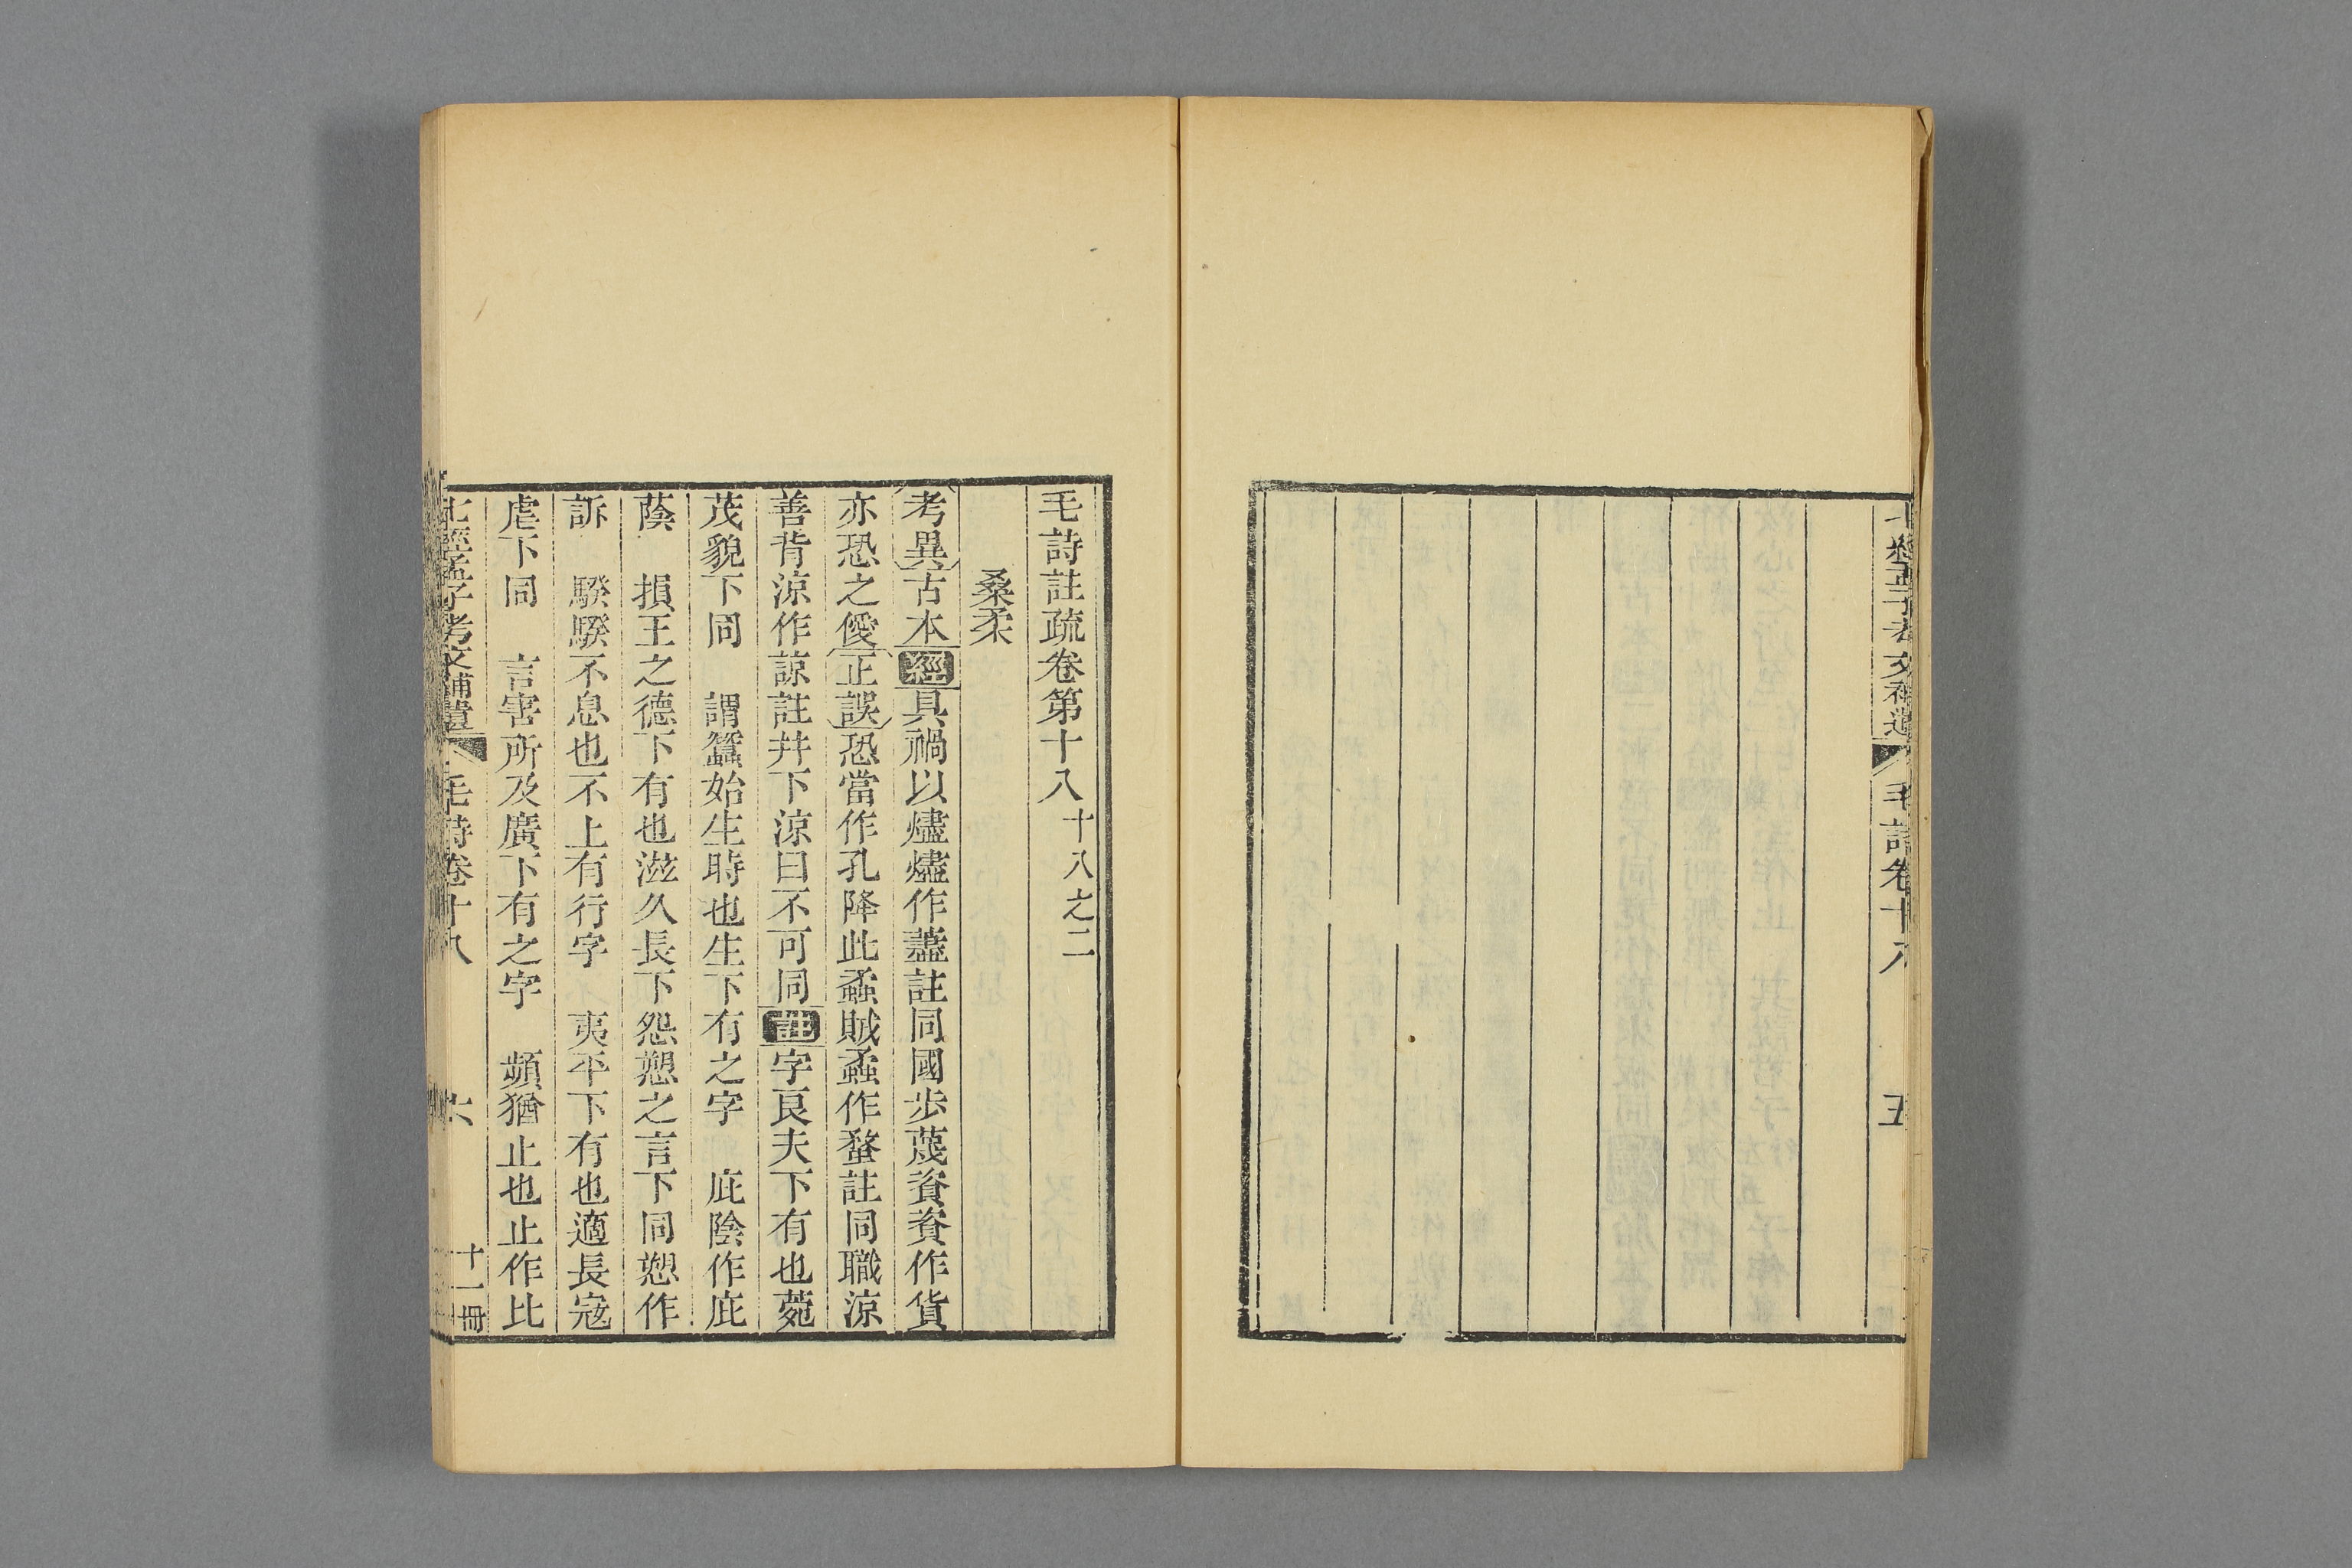 七經孟子考文補遺 毛詩卷十八 五
毛詩註疏卷第十八 十八之二
桑柔
考異 古本 經 具禍以燼燼作藎註同國步蔑資資作貨
亦恐之僾 正誤 恐當作孔降此蟊賊蟊作蝥註同職涼
善背涼作諒註幷下涼曰不可同 註 字良夫下有也菀
茂貌下同 謂蠶始生時也生下有之字 庇陰作庇
蔭 損王之德下有也滋久長下怨愬之言下同愬作
訴 騤騤不息也不上有行字 夷平下有也適長寇
虐下同 言害所及廣下有之字 頻猶止也止作比
七經孟子考文補遺 毛詩卷十八 六 十一冊